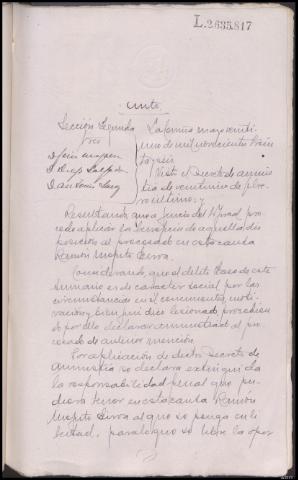 L.2635.817
Auto
Sección Segunda
Sres
La Coruña mayo venti
uno de mil novecientos trein
ta y seis
Visto el Decreto de amnis
tia de ventiuno de
ultimo; y
Resultando que a juicio del Mº Fiscal pro
cede aplicar los beneficios de aquella dis
posición al procesado en esta causa
Ramón Serra.
Considerando, que el delito base de este
sumario es de carácter social por las
circunstancias en él concurrentes, moti
vación y bien juridico lesionado, procedien
do por ello declarar amnistiado al pro
cesado de anterior mención.
Por aplicación de dicho Decreto de
amnistia se declara extinguida
la responsabilidad penal que pu
diera tener en esta causa Ramón
Serra al que se ponga en li
bertad, para lo que se libre la opor